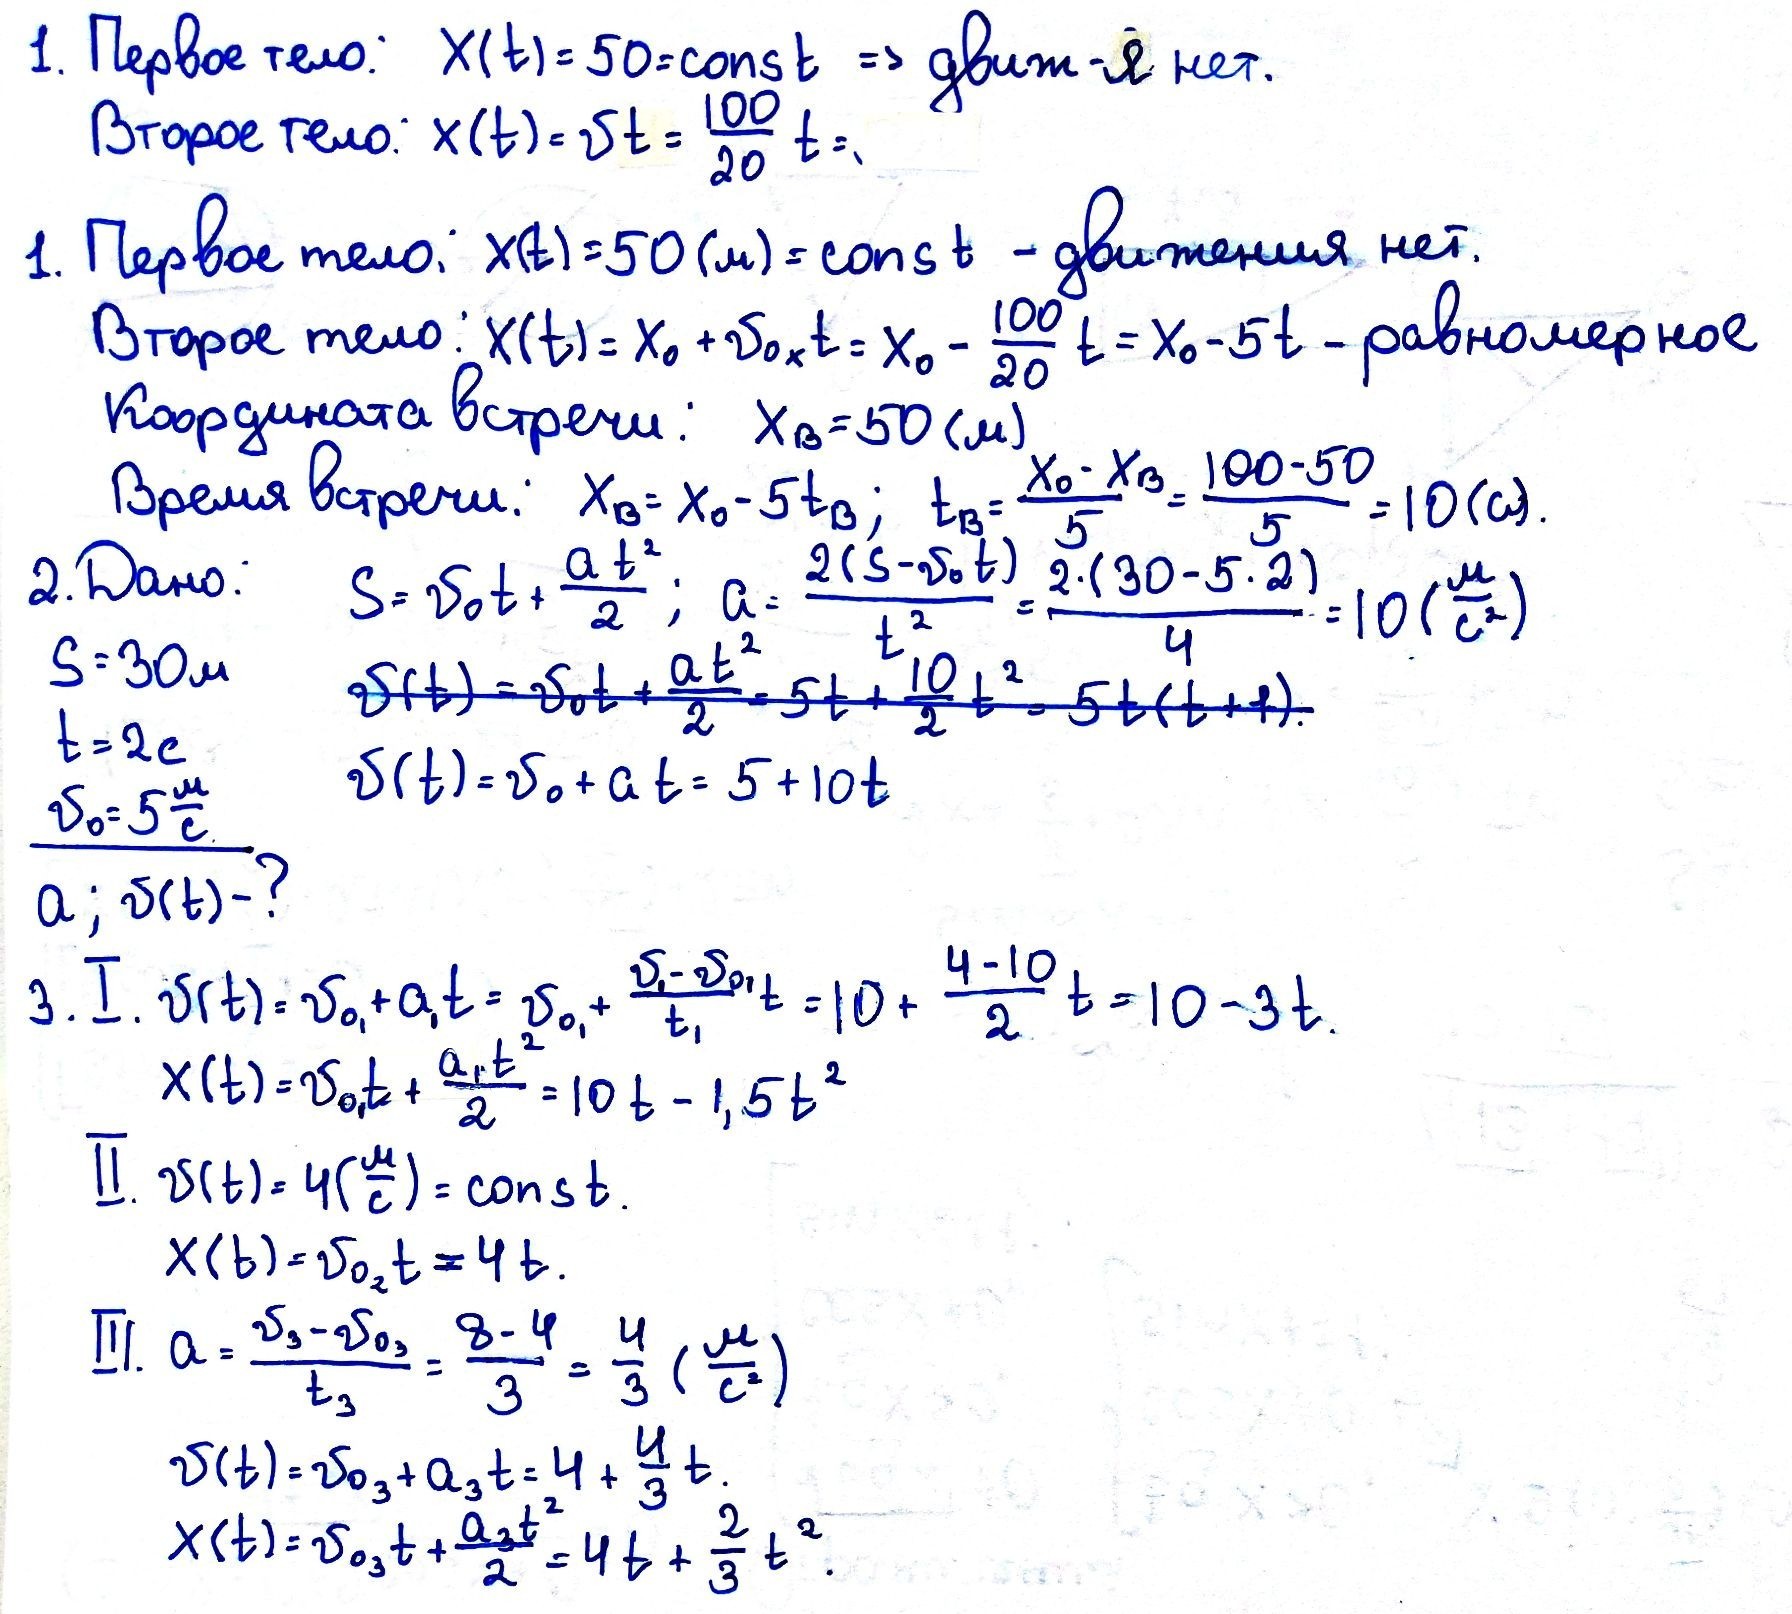 1. Первое тело: X(t) = 50 = const => движ-я нет.
Второе тело: x(t) = υt = 100/20 t =
1. Первое тело: x(t) = 50 (м) = const - движения нет.
Второе тело: x(t) = x₀ + υ₀ₓt = x₀ - 100/20 t = x₀ - 5t - равномерное
Координата встречи: x_B = 50 (м)
Время встречи: x_B = x₀ - 5t_B; t_B = (x₀ - x_B)/5 = (100 - 50)/5 = 10 (с).
2. Дано: S = υ₀t + at²/2; a = 2(S - υ₀t)/t² = 2·(30 - 5·2)/4 = 10 (м/с²)
S = 30м
υ(t) = υ₀t + at²/2 = 5t + 10/2 t² = 5t(t + 1).
t = 2с
υ(t) = υ₀ + at = 5 + 10t
υ₀ = 5 м/с
a; υ(t) - ?
3. I. υ(t) = υ₀₁ + a₁t = υ₀₁ + (υ₁ - υ₀₁)/t₁ t = 10 + (4 - 10)/2 t = 10 - 3t.
x(t) = υ₀₁t + a₁t²/2 = 10t - 1,5t²
II. υ(t) = 4 (м/с) = const.
x(t) = υ₀₂t = 4t.
III. a = (υ₃ - υ₀₃)/t₃ = (8 - 4)/3 = 4/3 (м/с²)
υ(t) = υ₀₃ + a₃t = 4 + 4/3 t.
x(t) = υ₀₃t + a₃t²/2 = 4t + 2/3 t².